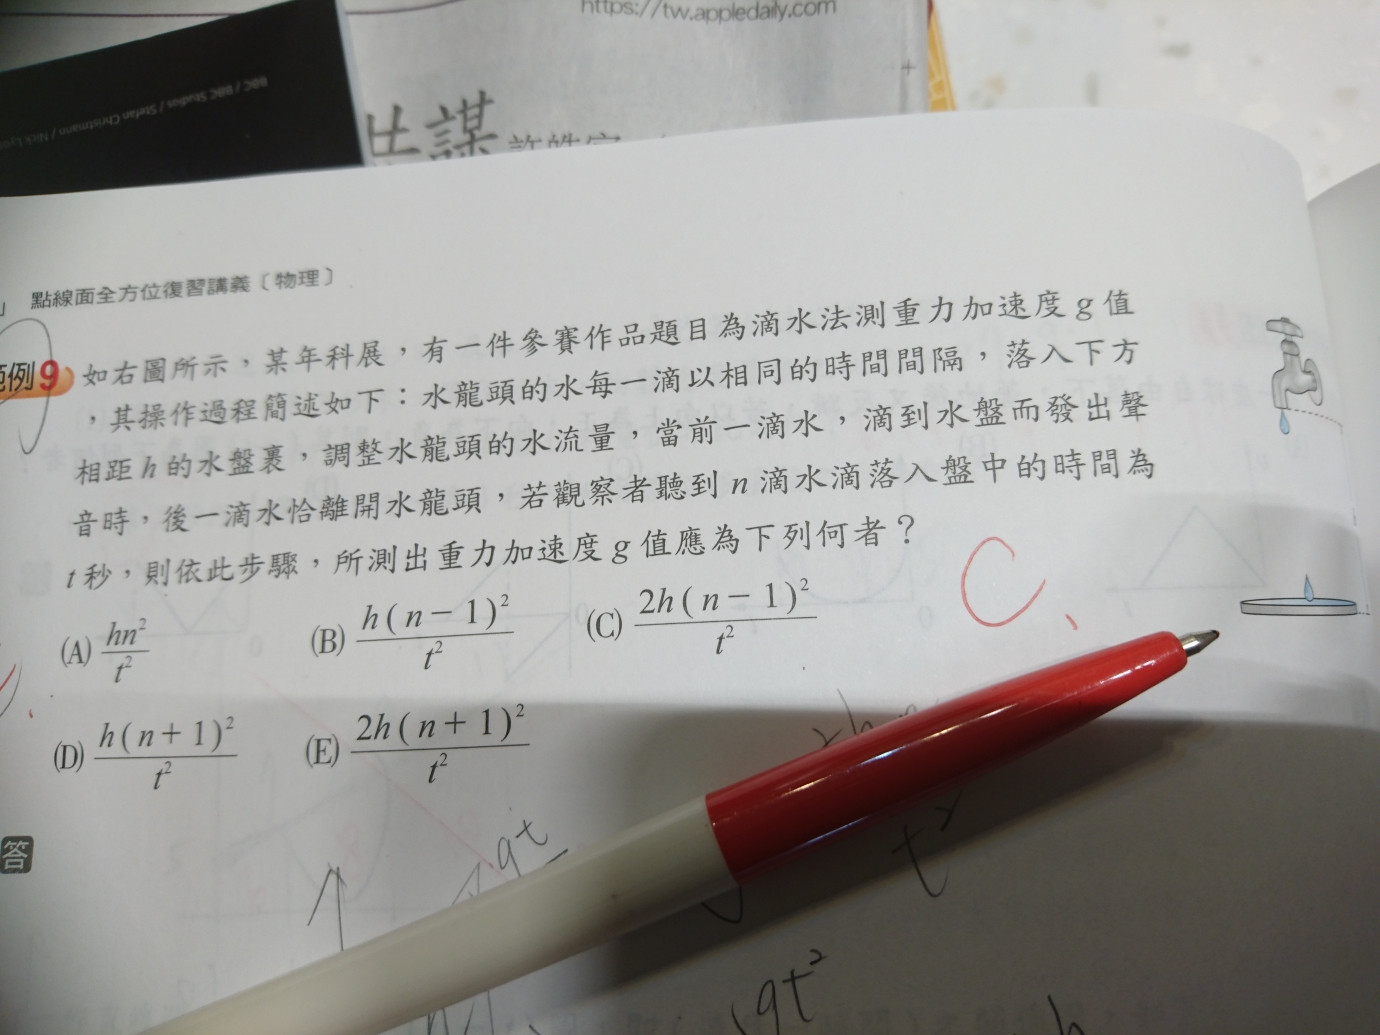 https://tw.appledaily.com
BBC / BBC Studios / Stefan Christmann / Nick Lyon
共謀
點線面全方位復習講義〔物理〕
範例9 如右圖所示，某年科展，有一件參賽作品題目為滴水法測重力加速度 g 值
，其操作過程簡述如下：水龍頭的水每一滴以相同的時間間隔，落入下方
相距 h 的水盤裏，調整水龍頭的水流量，當前一滴水，滴到水盤而發出聲
音時，後一滴水恰離開水龍頭，若觀察者聽到 n 滴水滴落入盤中的時間為
t 秒，則依此步驟，所測出重力加速度 g 值應為下列何者？
C.
(A) hn²/t² (B) h(n－1)²/t² (C) 2h(n－1)²/t²
(D) h(n+1)²/t² (E) 2h(n+1)²/t²
答
gt
t²
gt²
h